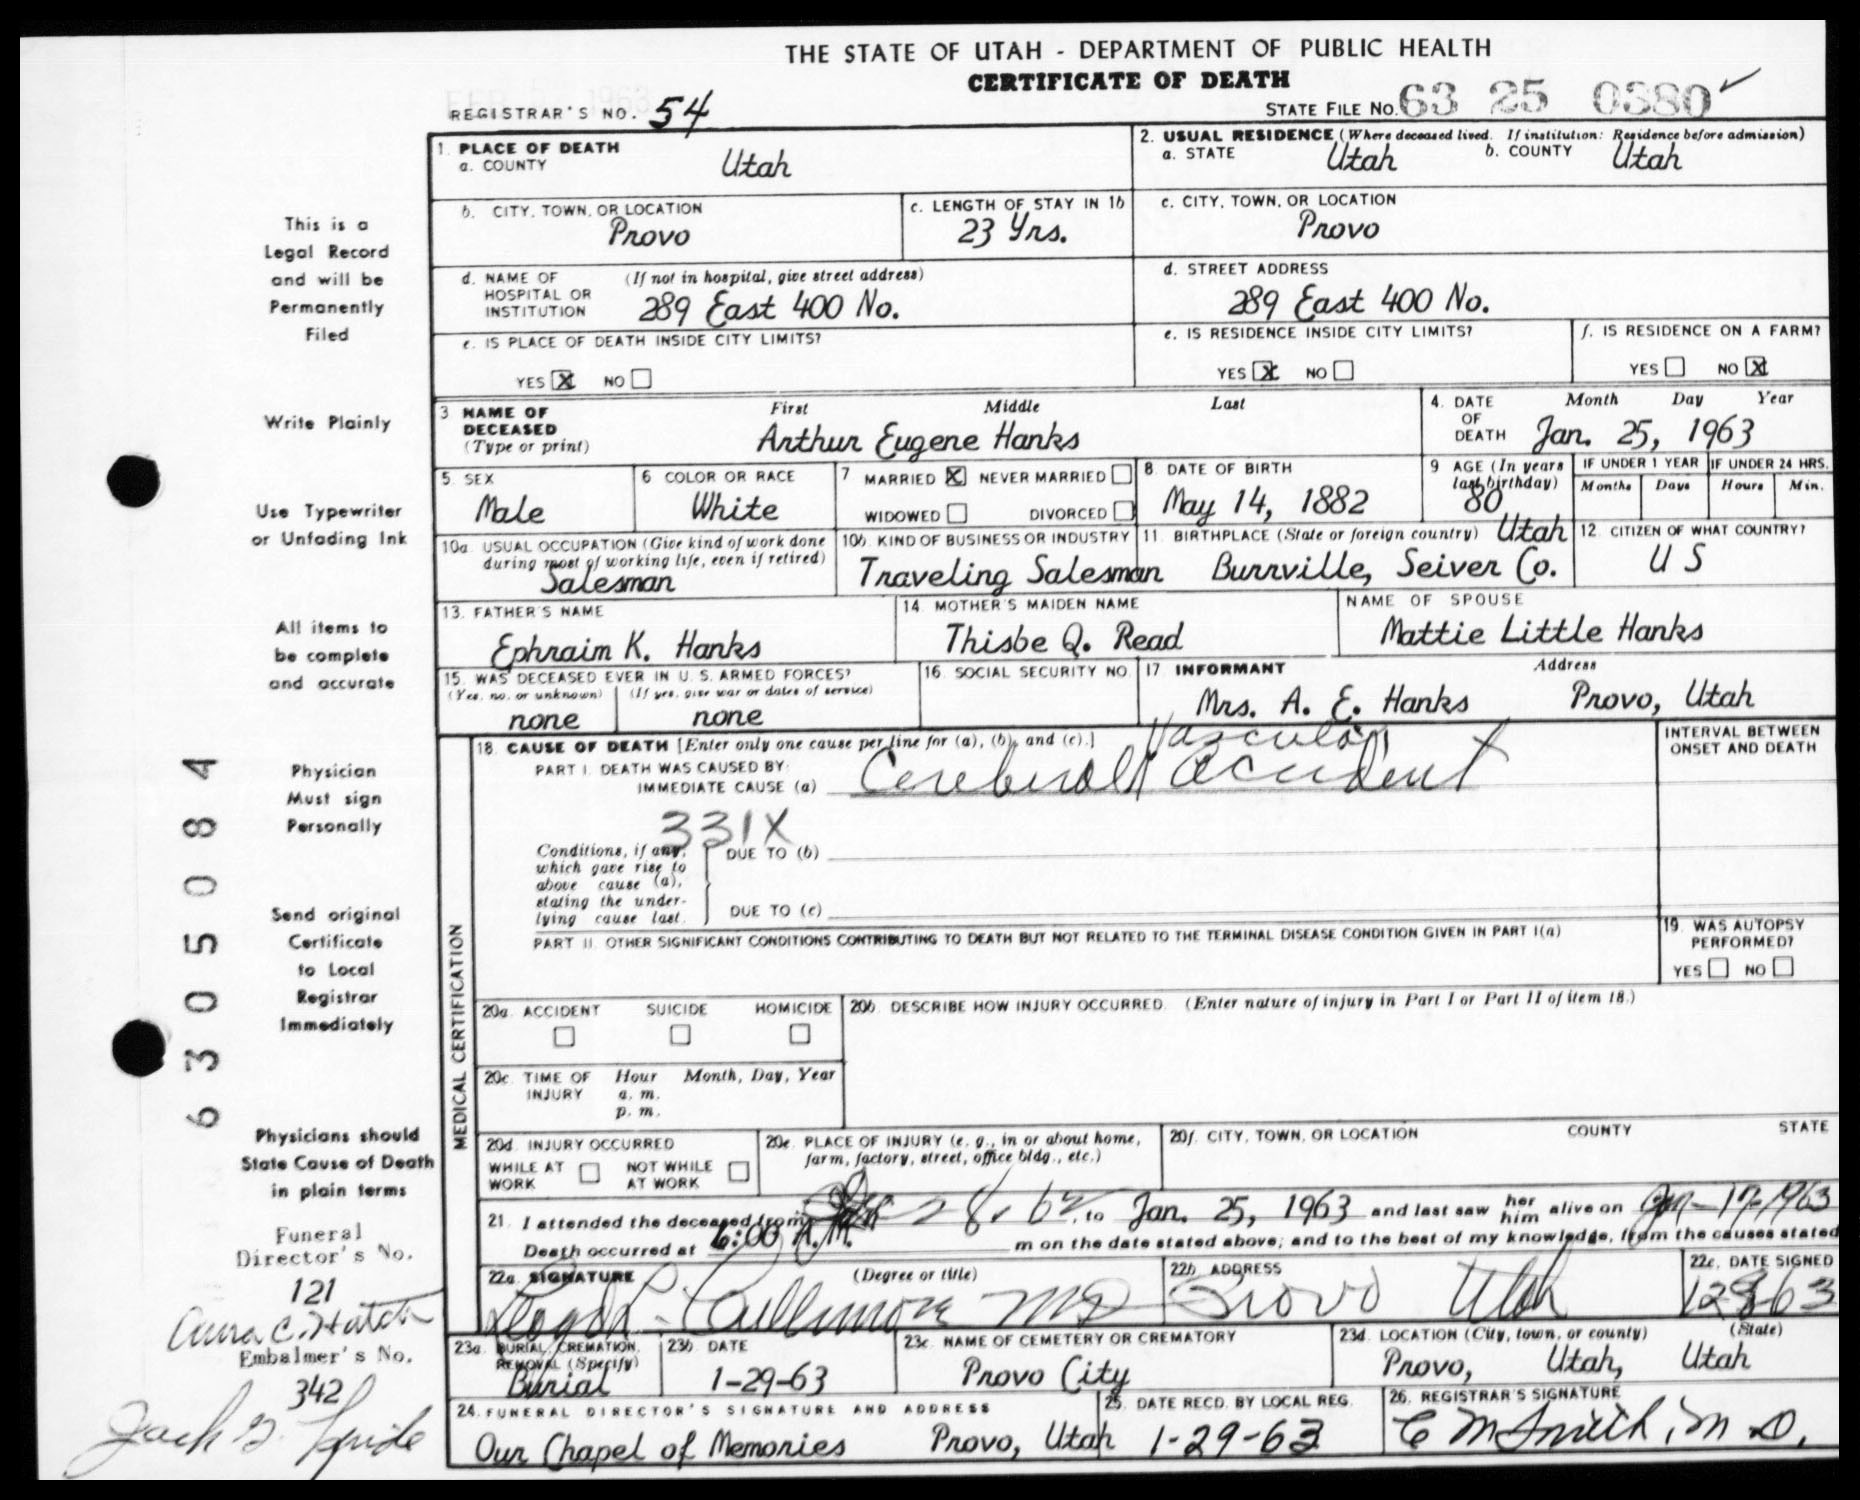 THE STATE OF UTAH - DEPARTMENT OF PUBLIC HEALTH
CERTIFICATE OF DEATH
REGISTRAR'S NO. 54
STATE FILE NO. 63 25 0380
1. PLACE OF DEATH
a. COUNTY Utah
2. USUAL RESIDENCE (Where deceased lived. If institution: Residence before admission)
a. STATE Utah b. COUNTY Utah
b. CITY, TOWN, OR LOCATION
Provo
c. LENGTH OF STAY IN 1b
23 Yrs.
c. CITY, TOWN, OR LOCATION
Provo
d. NAME OF HOSPITAL OR INSTITUTION (If not in hospital, give street address)
289 East 400 No.
d. STREET ADDRESS
289 East 400 No.
e. IS PLACE OF DEATH INSIDE CITY LIMITS?
YES X NO
e. IS RESIDENCE INSIDE CITY LIMITS?
YES X NO
f. IS RESIDENCE ON A FARM?
YES NO X
3 NAME OF DECEASED (Type or print) First Middle Last
Arthur Eugene Hanks
4. DATE OF DEATH Month Day Year
Jan. 25, 1963
5 SEX
Male
6 COLOR OR RACE
White
7 MARRIED X NEVER MARRIED
WIDOWED DIVORCED
8. DATE OF BIRTH
May 14, 1882
9 AGE (In years last birthday)
80
IF UNDER 1 YEAR
Months Days
IF UNDER 24 HRS.
Hours Min.
10a. USUAL OCCUPATION (Give kind of work done during most of working life, even if retired)
Salesman
10b. KIND OF BUSINESS OR INDUSTRY
Traveling Salesman
11. BIRTHPLACE (State or foreign country) Utah
Burrville, Seiver Co.
12. CITIZEN OF WHAT COUNTRY?
U S
13. FATHER'S NAME
Ephraim K. Hanks
14. MOTHER'S MAIDEN NAME
Thisbe Q. Read
NAME OF SPOUSE
Mattie Little Hanks
15. WAS DECEASED EVER IN U. S. ARMED FORCES?
(Yes, no, or unknown) (If yes, give war or dates of service)
none none
16. SOCIAL SECURITY NO.
17 INFORMANT Address
Mrs. A. E. Hanks Provo, Utah
MEDICAL CERTIFICATION
18. CAUSE OF DEATH [Enter only one cause per line for (a), (b), and (c).]
PART I. DEATH WAS CAUSED BY:
IMMEDIATE CAUSE (a) Cerebral Vascular accident
331X
Conditions, if any, which gave rise to above cause (a), stating the underlying cause last.
DUE TO (b)
DUE TO (c)
INTERVAL BETWEEN ONSET AND DEATH
PART II. OTHER SIGNIFICANT CONDITIONS CONTRIBUTING TO DEATH BUT NOT RELATED TO THE TERMINAL DISEASE CONDITION GIVEN IN PART I(a)
19. WAS AUTOPSY PERFORMED?
YES NO
20a. ACCIDENT SUICIDE HOMICIDE
20b. DESCRIBE HOW INJURY OCCURRED. (Enter nature of injury in Part I or Part II of item 18.)
20c. TIME OF INJURY Hour Month, Day, Year
a. m.
p. m.
20d. INJURY OCCURRED
WHILE AT WORK NOT WHILE AT WORK
20e. PLACE OF INJURY (e. g., in or about home, farm, factory, street, office bldg., etc.)
20f. CITY, TOWN, OR LOCATION COUNTY STATE
21. I attended the deceased from 28, 62, to Jan. 25, 1963 and last saw her him alive on Jan-17, 1963
Death occurred at 6:00 A.M. m on the date stated above; and to the best of my knowledge, from the causes stated
22a. SIGNATURE (Degree or title)
Cullimore MD
22b. ADDRESS
Provo Utah
22c. DATE SIGNED
23a. BURIAL, CREMATION, REMOVAL (Specify)
Burial
23b. DATE
1-29-63
23c. NAME OF CEMETERY OR CREMATORY
Provo City
23d. LOCATION (City, town, or county) (State)
Provo, Utah, Utah
24. FUNERAL DIRECTOR'S SIGNATURE AND ADDRESS
Our Chapel of Memories Provo, Utah
25. DATE RECD. BY LOCAL REG.
1-29-63
26. REGISTRAR'S SIGNATURE
C M Smith, M D.
This is a
Legal Record
and will be
Permanently
Filed
Write Plainly
Use Typewriter
or Unfading Ink
All items to
be complete
and accurate
Physician
Must sign
Personally
Send original
Certificate
to Local
Registrar
Immediately
Physicians should
State Cause of Death
in plain terms
Funeral
Director's No.
121
Anna C. Hatch
Embalmer's No.
342
6 3 0 5 0 8 4